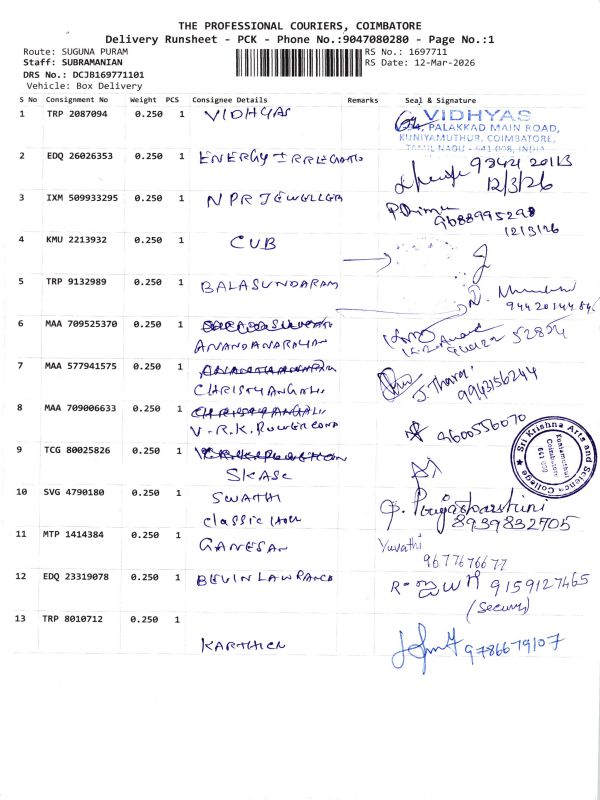 THE PROFESSIONAL COURIERS, COIMBATORE
Delivery Runsheet - PCK - Phone No.:9047080280 - Page No.:1
Route: SUGUNA PURAM
RS No.: 1697711
Staff: SUBRAMANIAN
RS Date: 12-Mar-2026
DRS No.: DCJB169771101
Vehicle: Box Delivery
S No Consignment No Weight PCS Consignee Details Remarks Seal & Signature
1 TRP 2087094 0.250 1 VIDHYAS
VIDHYAS
PALAKKAD MAIN ROAD,
KUNIYAMUTHUR, COIMBATORE,
TAMIL NADU - 641 008, INDIA
2 EDQ 26026353 0.250 1 ENERGY
12/3/26
3 IXM 509933295 0.250 1 NPR JEWELLER
9688995298
12/3/26
4 KMU 2213932 0.250 1 CUB
5 TRP 9132989 0.250 1 BALASUNDARAM
6 MAA 709525370 0.250 1
ANANDANARAYAN
7 MAA 577941575 0.250 1
J. Tharai
9943156244
8 MAA 709006633 0.250 1
V.R.K.
9600556070
9 TCG 80025826 0.250 1
SKASC
Sri Krishna Arts and Science College
Kuniamuthur
Coimbatore
641 008
10 SVG 4790180 0.250 1 SWATHI
classic
8939832705
11 MTP 1414384 0.250 1 GANESAN
Yuvathi
9677676677
12 EDQ 23319078 0.250 1 BEVIN LAWRANCE
9159127465
(Security)
13 TRP 8010712 0.250 1
KARTHICK
9786679107